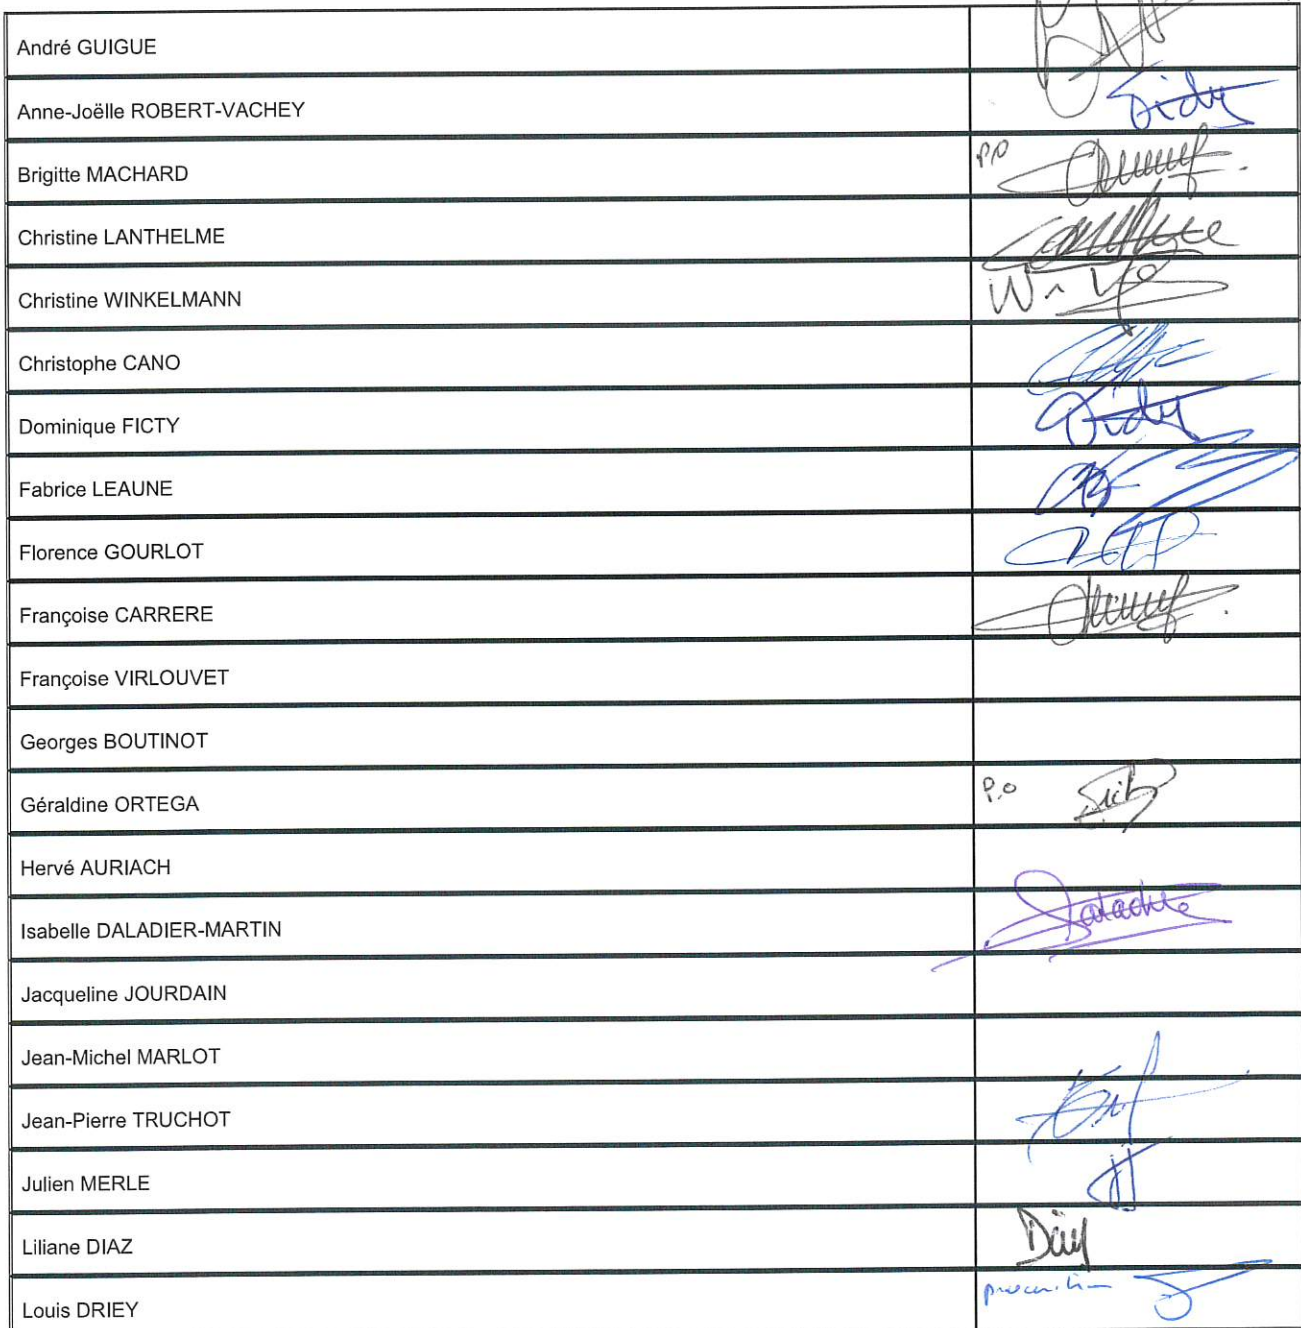 André GUIGUE
Anne-Joëlle ROBERT-VACHEY
Brigitte MACHARD
Christine LANTHELME
Christine WINKELMANN
Christophe CANO
Dominique FICTY
Fabrice LEAUNE
Florence GOURLOT
Françoise CARRERE
Françoise VIRLOUVET
Georges BOUTINOT
Géraldine ORTEGA P.O
Hervé AURIACH
Isabelle DALADIER-MARTIN
Jacqueline JOURDAIN
Jean-Michel MARLOT
Jean-Pierre TRUCHOT
Julien MERLE
Liliane DIAZ
Louis DRIEY